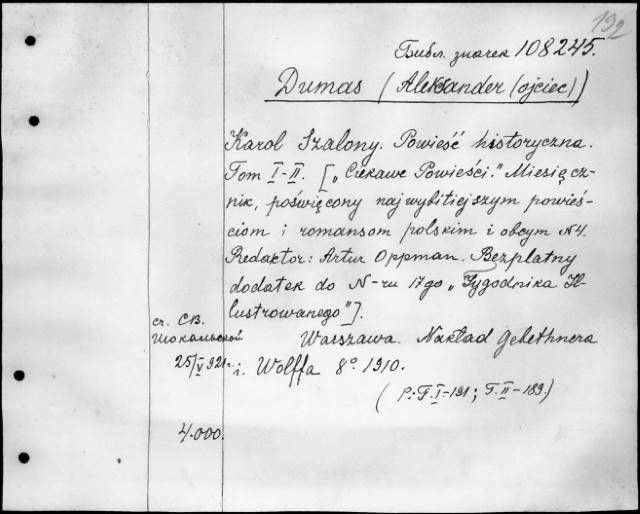 192
Библ. значек 108245.
Dumas (Aleksander (ojciec))
Karol Szalony. Powieść historyczna.
Tom I-II. [„Ciekawe Powieści." Miesięcz-
nik, poświęcony najwybitiejszym powieś-
ciom i romansom polskim i obcym N4.
Redaktor: Artur Oppman. Bezplatny
dodatek do N-ru 17go „Tygodnika Il-
lustrowanego"].
Warszawa. Nakład Gebethnera
i Wolffa 8° 1910.
(P: T. I-191; T. II-189.)
ст. СВ.
25/V 921г.
4.000.